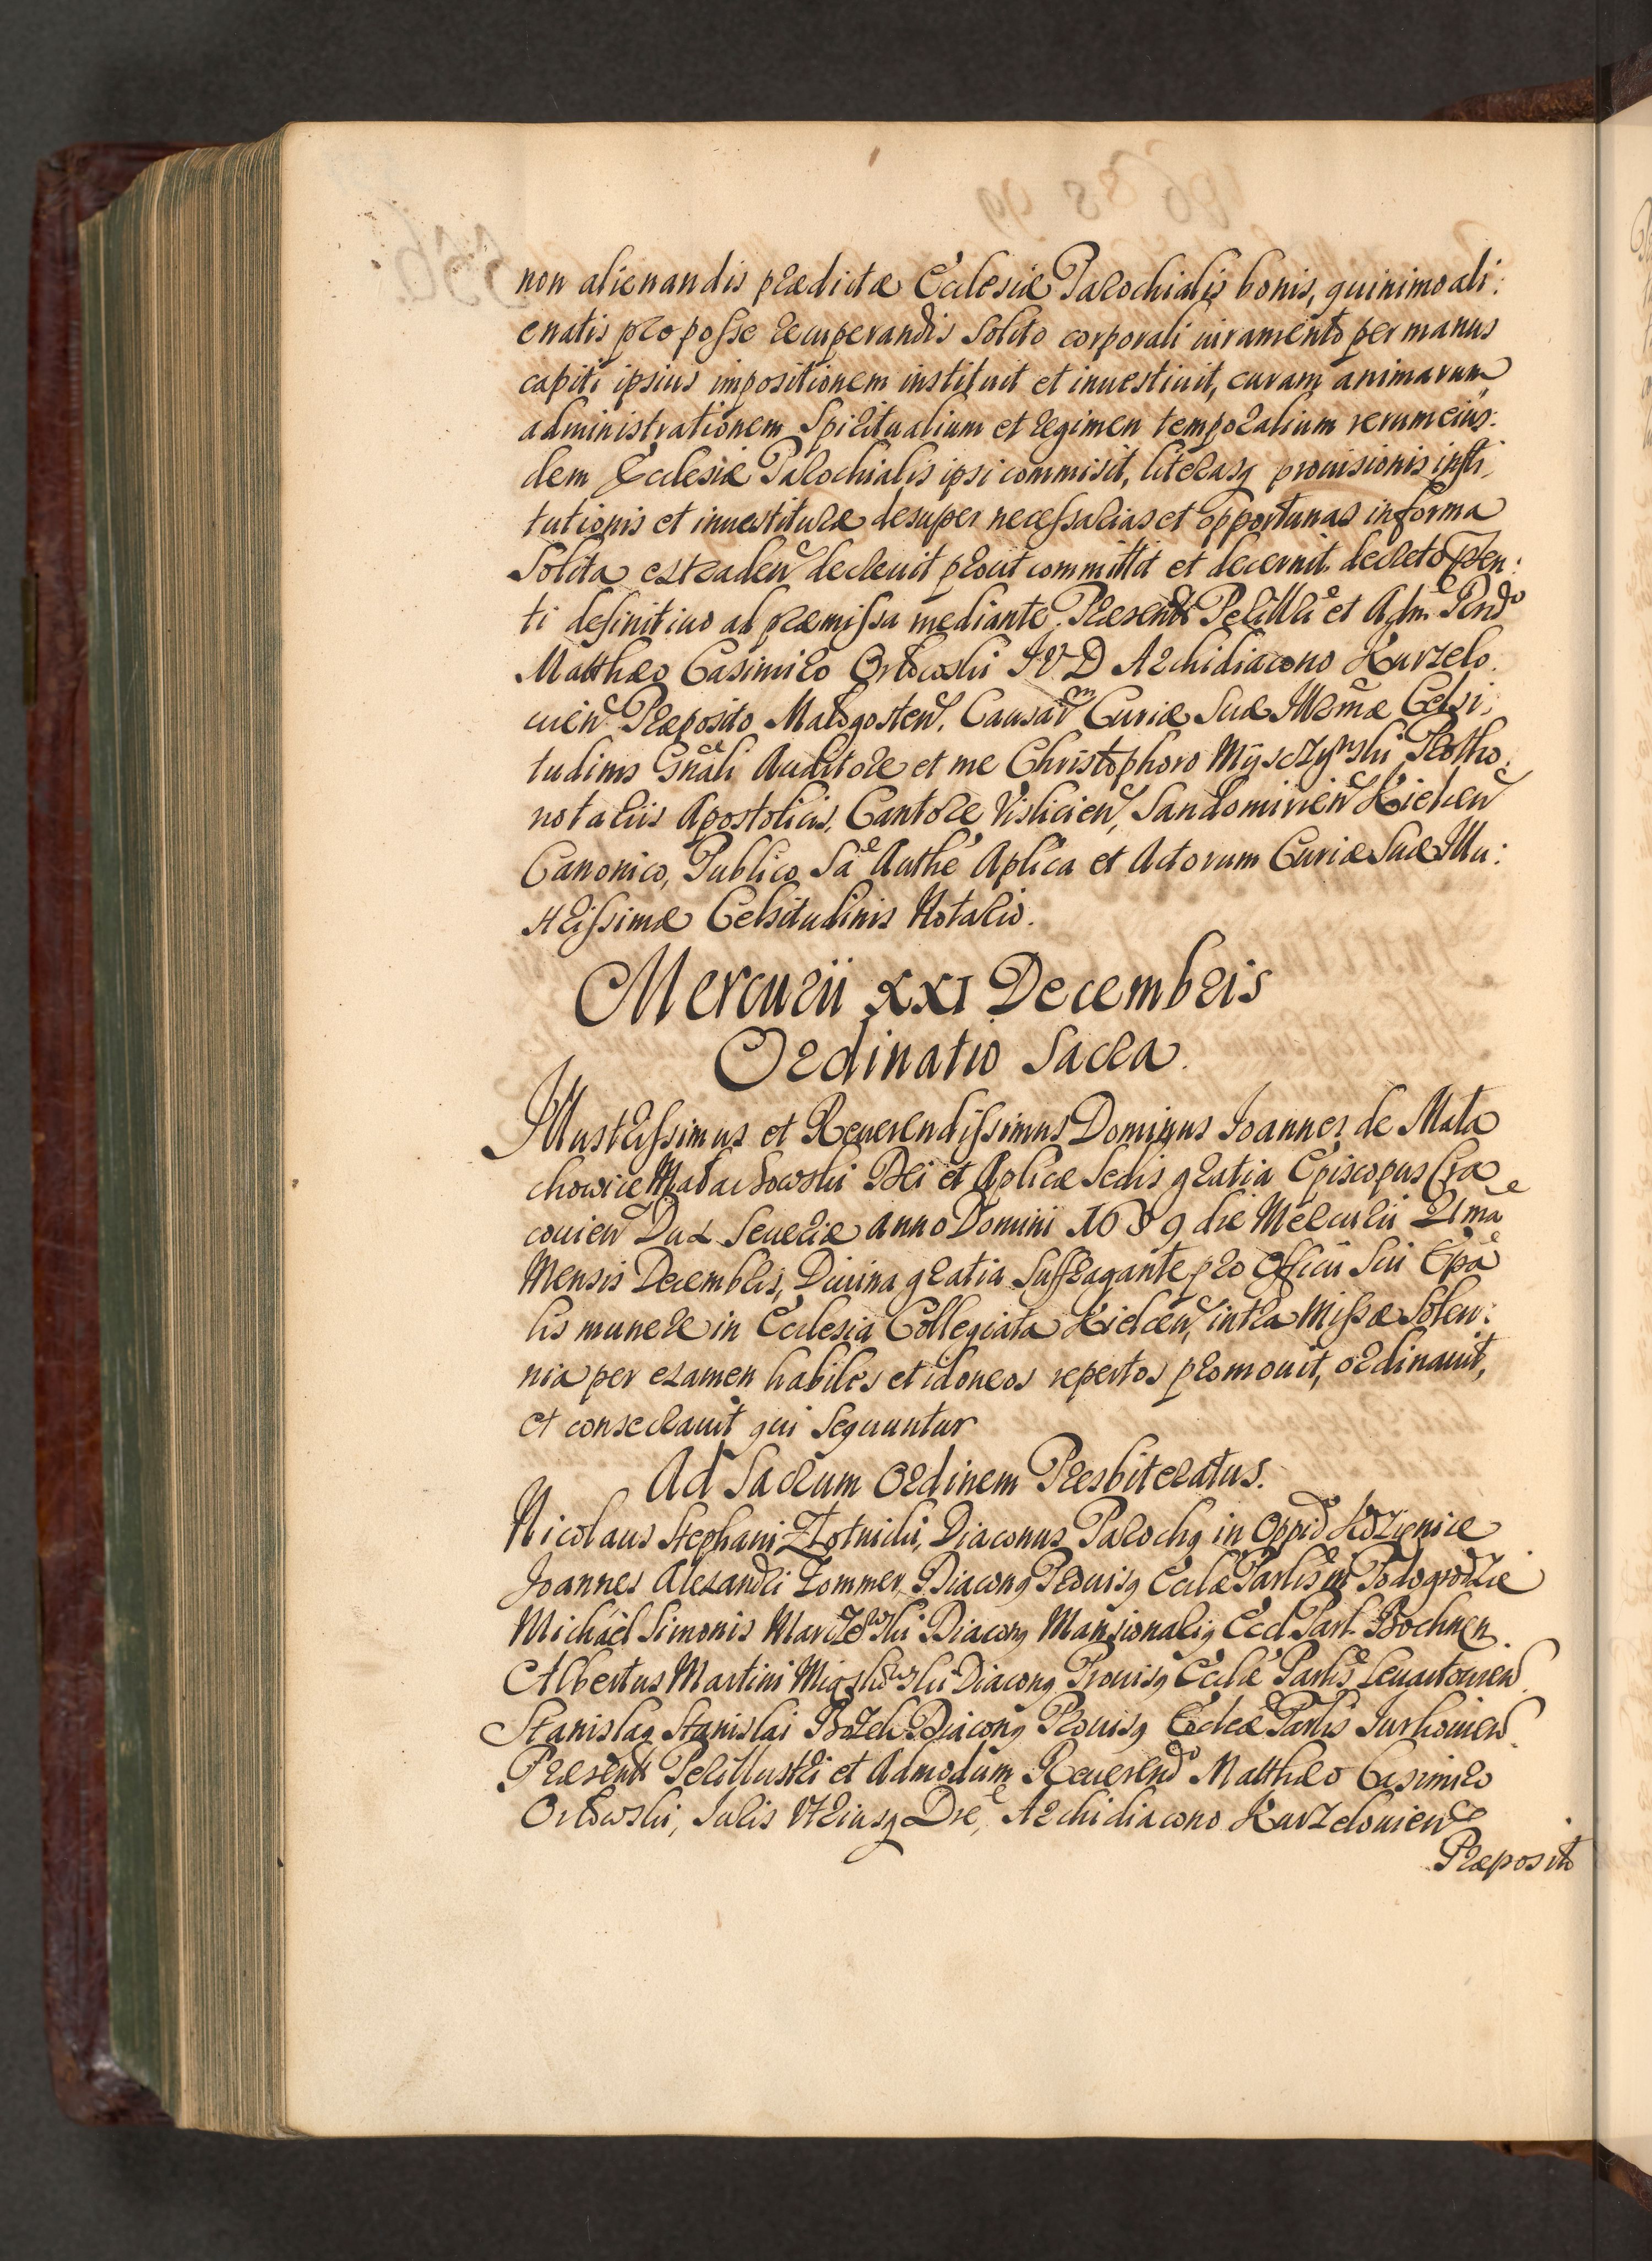 non alienandis prædictæ Ecclesiæ Parochialis bonis, quinimo ali:
enatis pro posse recuperandis solito corporali iuramento per manus
capiti ipsius impositionem instituit et inuestiuit, curam animarum
administrationem Spiritualium et regimen temporalium rerum eius:
dem Ecclesiæ Parochialis ipsi commisit, literasq prouisionis insti,
tutionis et inuestituræ desuper necessarias et opportunas in forma
Solita extraden decreuit prout committit et decernit decreto præsen:
ti definitiuo ad præmissa mediante. Præsentt Perilltri et Adm. Rndo
Matthæo Casimiro Orłowski I V D Archidiacono Kurzelo
uien Præposito Małogosten, Causarm Curiæ Suæ Illrmæ Celsi,
tudinis Gnali Auditore et me Christophoro Mÿsczÿnski Protho,
notariis Apostolicis, Cantore Vislicien, Sandomirien Kielcen
Canonico, Publico Sa Authe Aplica et Actorum Curiæ Suæ Illu:
strissimæ Celsitudinis Notario.
Mercurii XXI Decembris
Ordinatio Sacra.
Illustrissimus et Reuerendissimus Dominus Ioannes de Mała
chowice Małachowski Dei et Aplicæ Sedis gratia Episcopus Cra
couien Dux Seueriæ Anno Domini 1689 die Mercurii 21ma
Mensis Decembris, Diuina gratia Suffragante pro Officii Sui Epa
lis munere in Ecclesia Collegiata Kielcen, intra Missæ Solen:
nia per examen habiles et idoneos repertos promouit, ordinauit,
et consecrauit qui sequuntur
Ad Sacrum Ordinem Presbiteratus.
Nicolaus Stephani Złotnicki, Diaconus Parochq in Oppido Kozienice
Joannes Alexandri Zommer, Diaconq Prouisq Ecclæ Parlis in Podogrodzie
Michael Simonis Marczewski Diaconq Mansionaliq Eccl. Parl. Bochnen.
Albertus Martini Mioskowski Diaconq Prouisq Ecclæ Parlis
Stanislaq Stanislai Bozek Diaconq Prouisq Ecclæ Parlis
Præsentt Perillustri et Admodum Reuerendo Matthæo Casimiro
Orłowski, Iuris Vtriusq Dre, Archidiacono Kurzelouien
Præposito